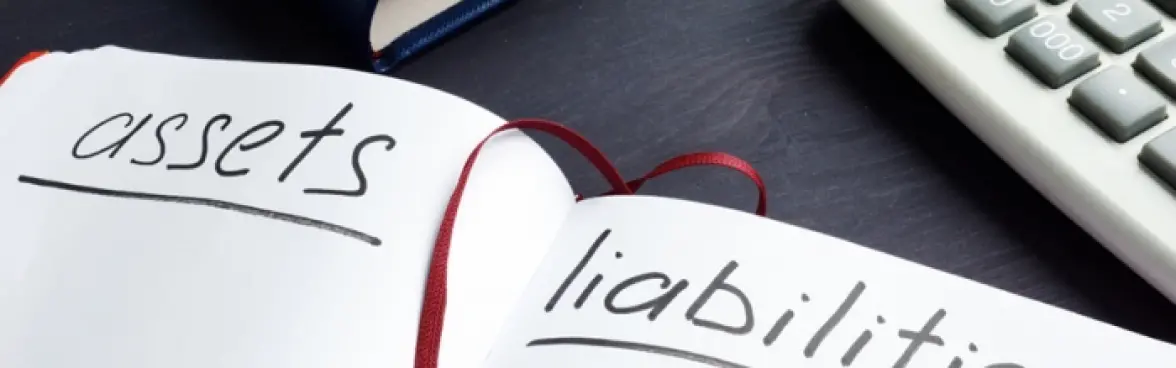 assets
liabiliti
000
2